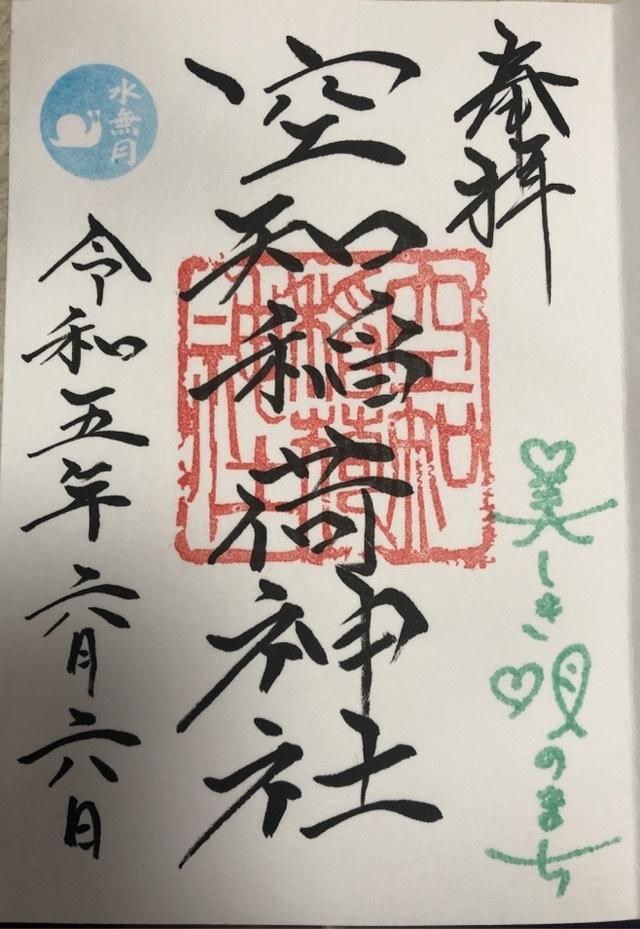 奉拝
美しき唄のまち
空知稲荷神社
空知稲荷神社
水無月
令和五年六月六日